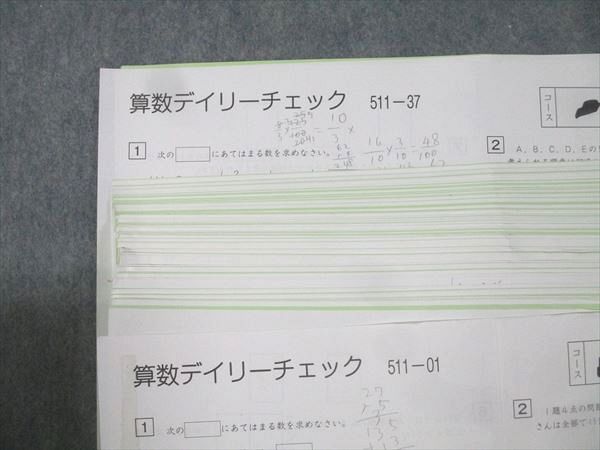 算数デイリーチェック 511-37
コース
1 次の にあてはまる数を求めなさい。
2 A、B、C、D、Eの
= 10/3 ×
16/10 × 3/10 = 48/100
算数デイリーチェック 511-01
コース
1 次の にあてはまる数を求めなさい。
2 1題4点の問題
さんは全部で
27
135